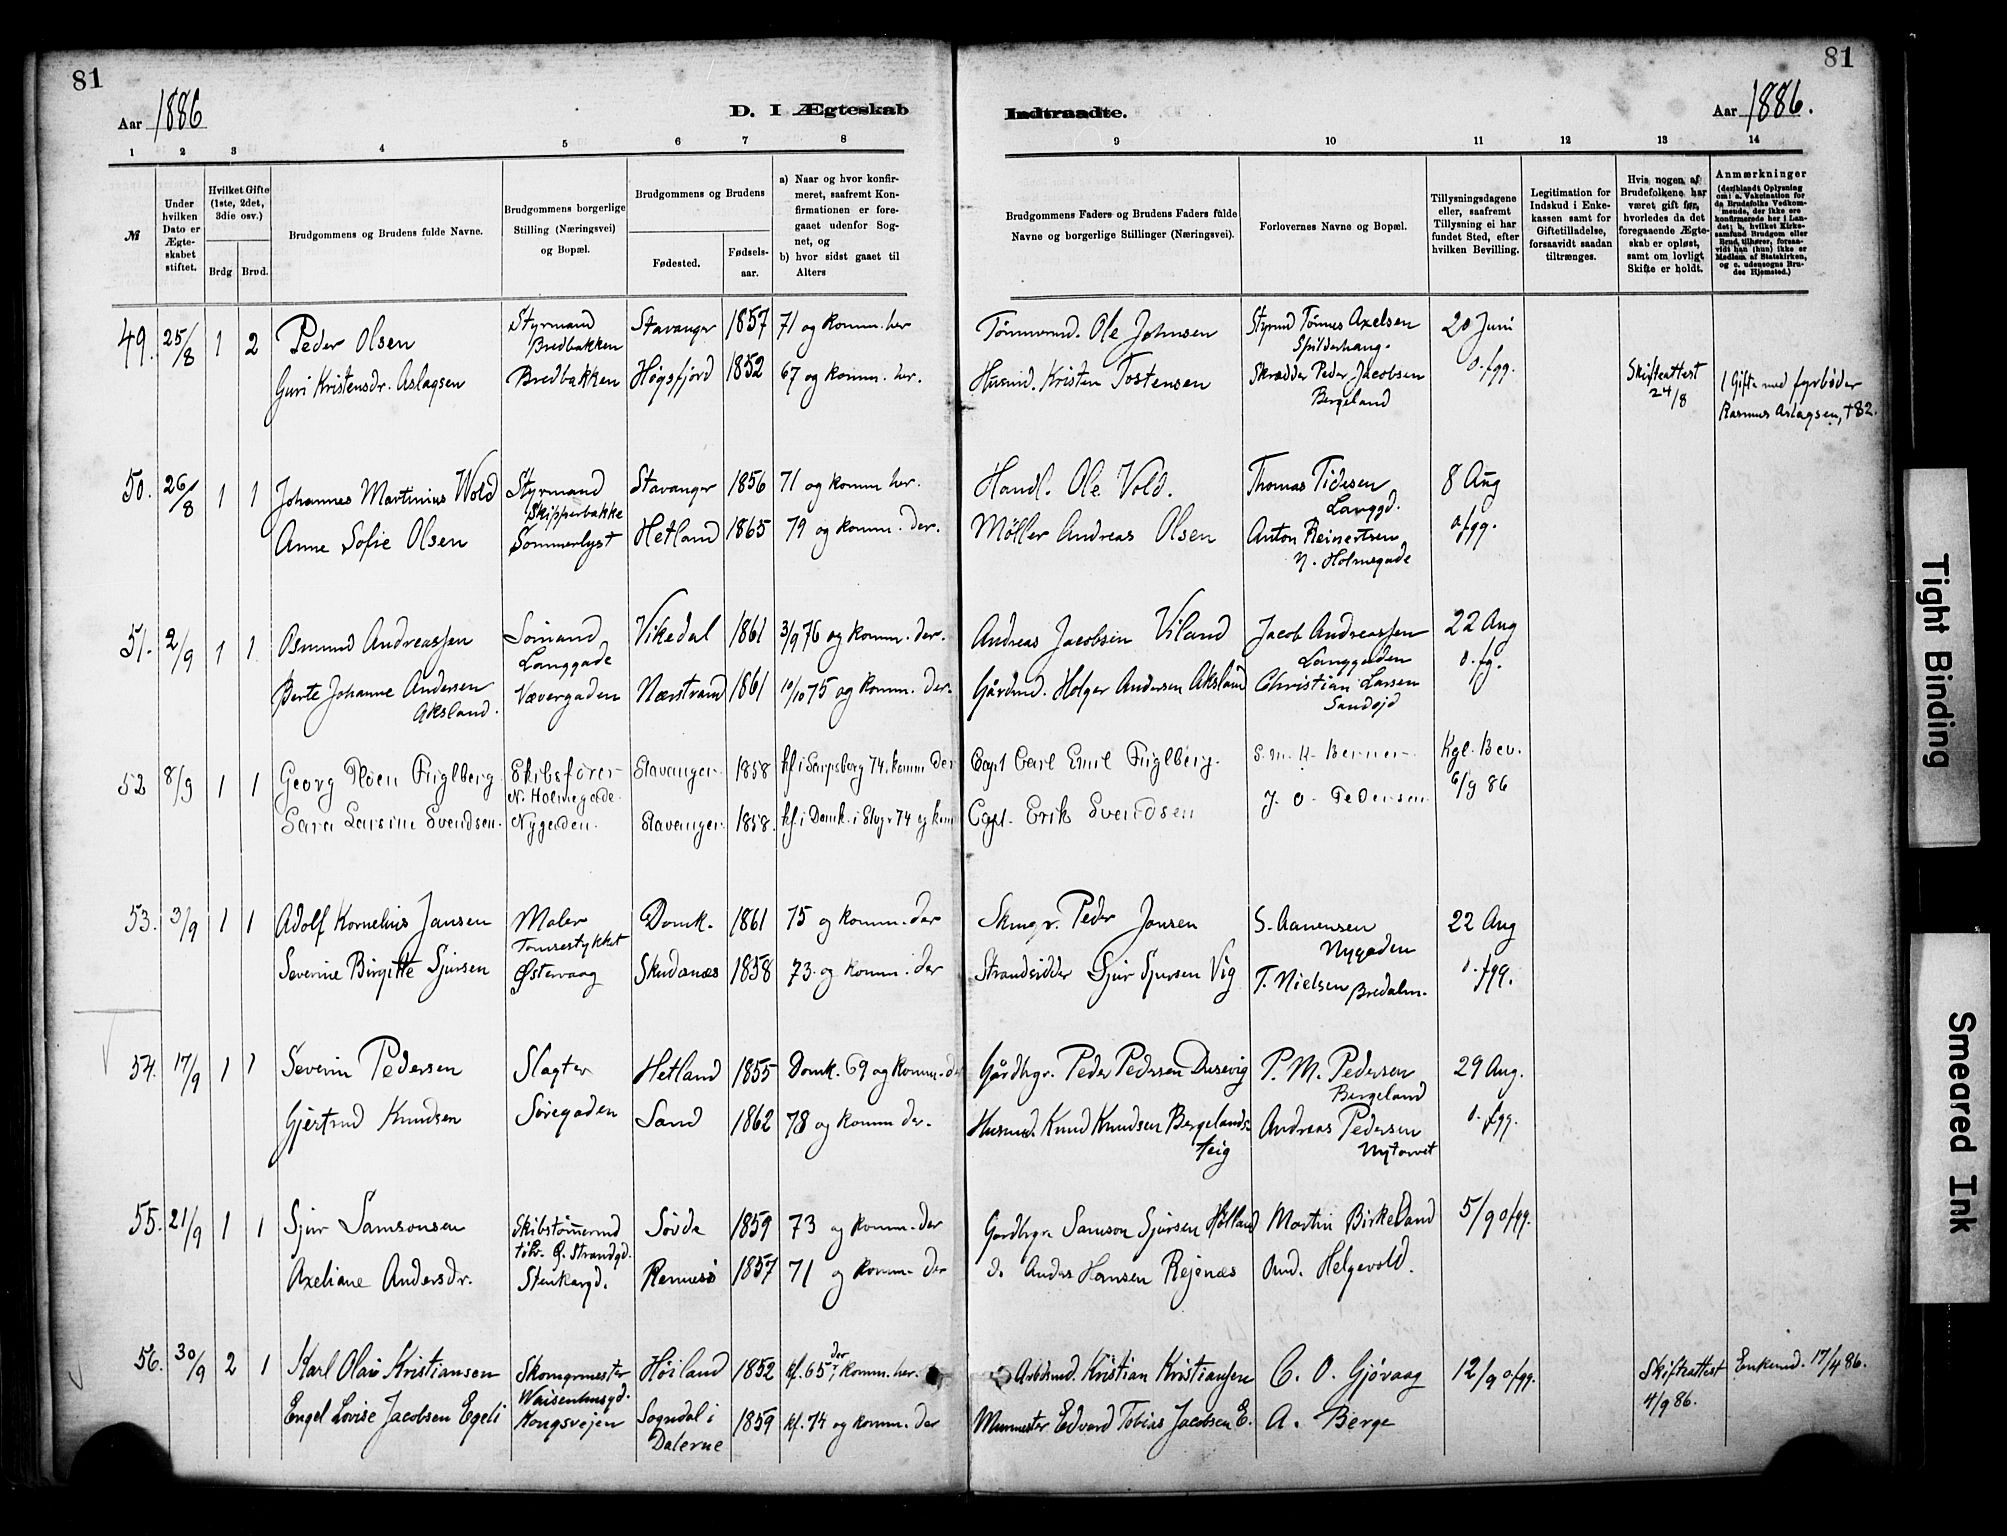 81
81
Aar 1886
D. I Ægteskab
Indtraadte.
Aar 1886.
1 2 3 4 5 6 7 8
9 10 11 12 13 14
№
Under hvilken Dato er Ægteskabet stiftet.
Hvilket Gifte (1ste, 2det, 3die osv.)
Brdg. Brud.
Brudgommens og Brudens fulde Navne.
Brudgommens borgerlige Stilling (Næringsvei) og Bopæl.
Brudgommens og Brudens
Fødested. Fødselsaar.
a) Naar og hvor konfirmeret, saafremt Konfirmationen er foregaaet udenfor Sognet, og
b) hvor sidst gaaet til Alters
Brudgommens Faders og Brudens Faders fulde Navne og borgerlige Stillinger (Næringsvei).
Forlovernes Navne og Bopæl.
Tillysningsdagene eller, saafremt Tillysning ei har fundet Sted, efter hvilken Bevilling.
Legitimation for Indskud i Enkekassen samt for Giftetilladelse, forsaavidt saadan tiltrænges.
Hvis nogen af Brudefolkene har været gift før, hvorledes da det foregaaende Ægteskab er opløst, samt om lovligt Skifte er holdt.
Anmærkninger
(deriblandt Oplysning om: a. Vakcination for de Brudefolks Vedkommende, der ikke ere konfirmerede her i Landet; b, hvilket Kirkesamfund Brudgom eller Brud tilhører, forsaavidt han (hun) ikke er Medlem af Statskirken, og c. udensogns Brudes Hjemsted.)
49. 25/8 1 2 Peder Olsen Styrmand Bredbakken Stavanger 1857 71 og komm. her Tømmermd. Ole Johnsen Styrmd Tønnes Axelsen Spilderhaug. 20 Juni
Guri Kristensdr. Aslagsen Bredbakken Høgsfjord 1852 67 og komm. her. Husmd. Kristen Tostensen Skrædder Peder Jacobsen Bergeland o. fgg. Skifteattest 24/8 / Gift med fyrbøder Rasmus Aslagsen, †82.
50. 26/8 1 1 Johannes Martinius Wold Styrmand Skipperbakke Stavanger 1856 71 og komm her. Handl. Ole Vold. Thomas Tidesen Langgd. 8 Aug
Anne Sofie Olsen Sommerlyst Hetland 1865 79 og komm. der. Møller Andreas Olsen Anton Reinertsen N. Holmegade o fgg.
51. 2/9 1 1 Osmund Andreassen Sømand Langgade Vikedal 1861 3/9 76 og komm. der. Andreas Jacobsen Viland Jacob Andreassen Langgaden 22 Aug
Berte Johanne Andersen Aksland. Vævergaden Nærstrand 1861 10/10 75 og komm. der. Gårdmd. Holger Andersen Aksland Christian Larsen Sandøjd o. fg.
52 8/9 1 1 Georg Ploen Fuglberg Skibsfører N. Holmegade. Stavanger 1858 kf i Sarpsborg 74. komm der Capt Carl Emil Fuglberg. S. M. K. Berner Kgl. Bev.
Sara Larsine Svendsen. Nygaden. Stavanger 1858. kf. i Domk. i Stvgr 74 og kom Capt. Erik Svendsen J. O. Pedersen 6/9 86
53. 3/9 1 1 Adolf Kornelius Jansen Maler Tomsestykket Domk. 1861 75 og komm. der Skmgr. Peder Jansen S. Aanensen Nygaden 22 Aug
Severine Birgitte Sjursen Østervaag Skudenæs 1858 73. og komm. der Strandsidder Sjur Sjursen Vig T. Nielsen Bredalm. o. fgg.
54. 17/9 1 1 Severin Pedersen Slagter Hetland 1855 Domk. 69 og komm. der Gårdbgr. Peder Pedersen Dusevig P. M. Pedersen Bergeland 29 Aug.
Gjertrud Knudsen Søregaden Sand 1862 78 og komm der. Husmd. Knud Knudsen Bergelandsteig Andreas Pedersen Nytorvet o. fgg.
55. 21/9 1 1 Sjur Samsonsen Skibstømermd Ø. Strandgd. Søvde 1859 73 og komm. der Gardbgr. Samson Sjursen Hølland Martin Birkeland 5/9 o fgg.
Axeliane Andersdr. Stenkargd. Rennesø 1857 71 og komm. der d. Anders Hansen Rejenæs And. Helgevold.
56. 30/9 2 1 Karl Olai Kristiansen Skomgrmester Waisenhusgd. Høiland 1852 kf. 65 der, komm. her. Arbdsmd. Kristian Kristiansen C. O. Gjøvaag 12/9 o fgg. Skifteattest 4/9 86. Enkemd. 17/4 86.
Engel Lovise Jacobsen Egeli Kongsvejen Sogndal i Dalerne 1859 kf. 74 og komm. der Murmester Edvard Tobias Jacobsen E. A. Berge
Tight Binding
Smeared Ink